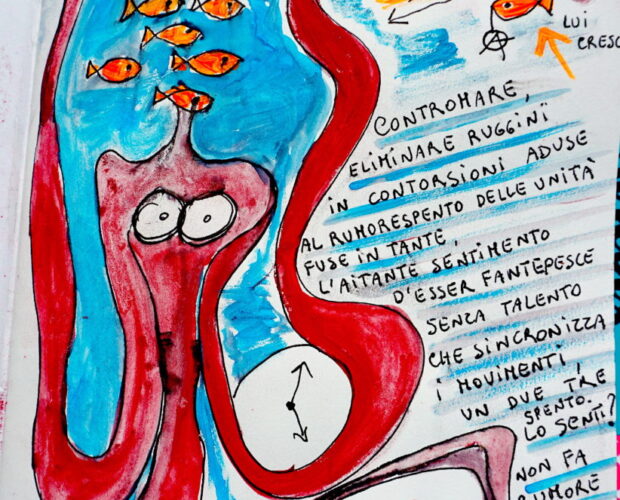 LUI
CRESC
CONTROMARE,
ELIMINARE RUGGINI
IN CONTORSIONI ADUSE
AL RUMORESPENTO DELLE UNITÀ
FUSE IN TANTE,
L'AITANTE SENTIMENTO
D'ESSER FANTEPESCE
SENZA TALENTO
CHE SINCRONIZZA
I MOVIMENTI,
UN DUE TRE
SPENTO.
LO SENTI?
NON FA
RUMORE